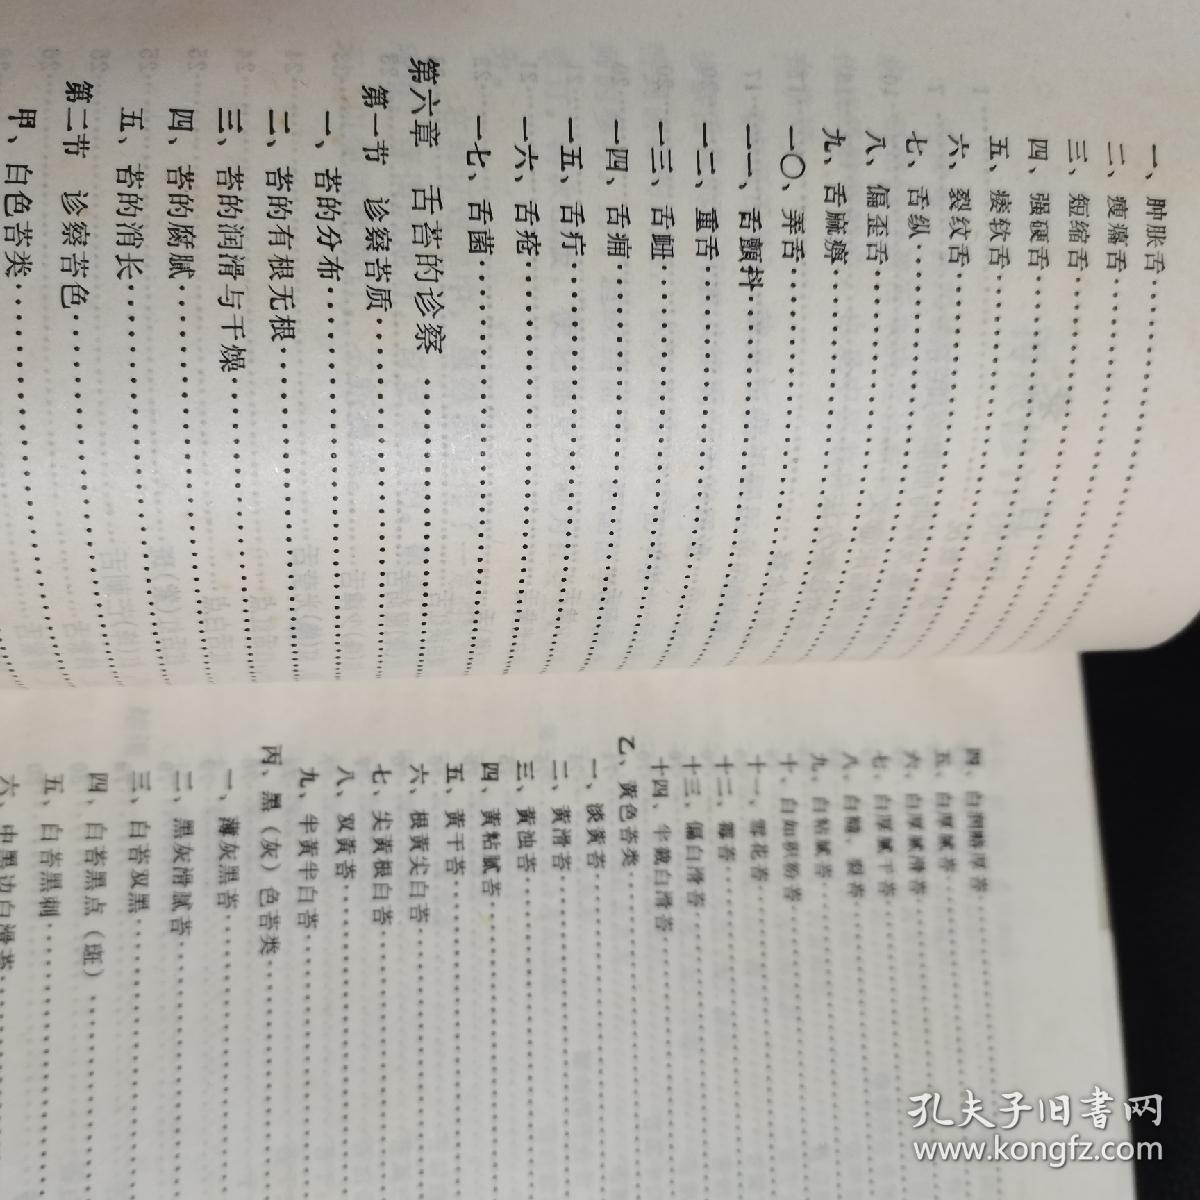 一、肿胀舌
二、瘦薄舌
三、短缩舌
四、强硬舌
五、痿软舌
六、裂纹舌
七、舌纵
八、偏歪舌
九、舌麻痹
一〇、弄舌
一一、舌颤抖
一二、重舌
一三、舌衄
一四、舌痈
一五、舌疔
一六、舌疮
一七、舌菌
第六章 舌苔的诊察
第一节 诊察苔质
一、苔的分布
二、苔的有根无根
三、苔的润滑与干燥
四、苔的腐腻
五、苔的消长
第二节 诊察苔色
甲、白色苔类
五、白厚腻苔
六、白厚腻滑苔
七、白厚腻干苔
八、白糙、裂苔
九、白粘腻苔
十、白如积粉苔
十一、雪花苔
十二、霉苔
十三、偏白滑苔
十四、半截白滑苔
乙、黄色苔类
一、淡黄苔
二、黄滑苔
三、黄浊苔
四、黄粘腻苔
五、黄干苔
六、根黄尖白苔
七、尖黄根白苔
八、双黄苔
九、半黄半白苔
丙、黑（灰）色苔类
一、薄灰黑苔
二、黑灰滑腻苔
三、白苔双黑
四、白苔黑点（斑）
五、白苔黑刺
六、中黑边白滑苔
孔夫子旧书网
www.kongfz.com